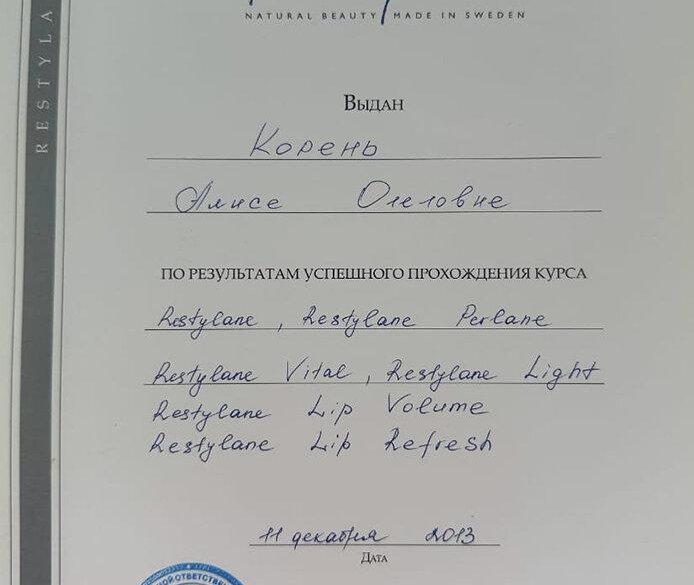 RESTYLA
NATURAL BEAUTY MADE IN SWEDEN
Выдан
Корень
Алисе Олеговне
ПО РЕЗУЛЬТАТАМ УСПЕШНОГО ПРОХОЖДЕНИЯ КУРСА
Restylane, Restylane Perlane
Restylane Vital, Restylane Light
Restylane Lip Volume
Restylane Lip Refresh
11 декабря 2013
Дата